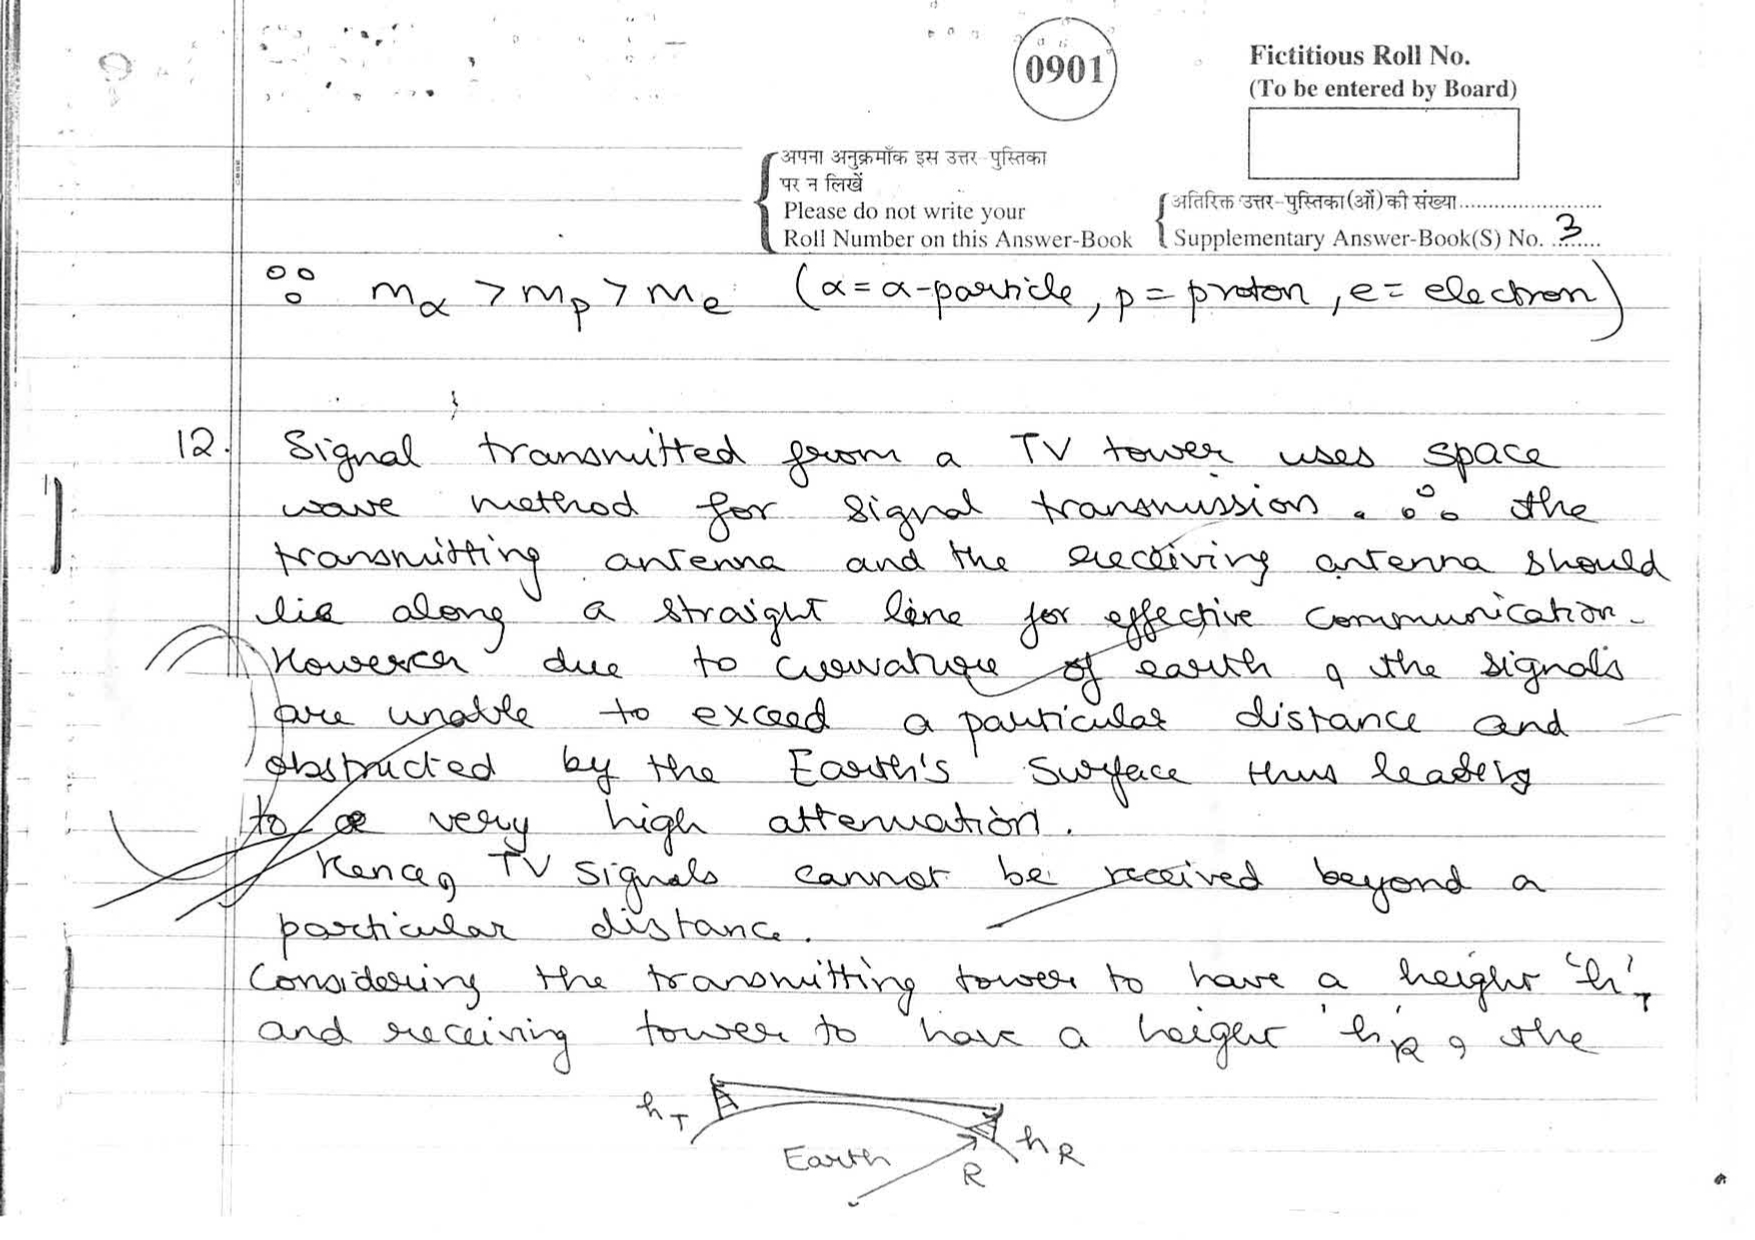 0901
Fictitious Roll No.
(To be entered by Board)
अपना अनुक्रमाँक इस उत्तर-पुस्तिका
पर न लिखें
Please do not write your
Roll Number on this Answer-Book
अतिरिक्त उत्तर-पुस्तिका(ओं) की संख्या......................
Supplementary Answer-Book(S) No. ...3...
∴ mα > mp > me (α = α-particle, p = proton, e = electron)
12. Signal transmitted from a TV tower uses space
wave method for signal transmission. ∴ the
transmitting antenna and the receiving antenna should
lie along a straight line for effective communication.
However due to curvature of earth, the signals
are unable to exceed a particular distance and
obstructed by the Earth's surface thus leading
to a very high attenuation.
Hence, TV signals cannot be received beyond a
particular distance.
Considering the transmitting tower to have a height 'hT'
and receiving tower to have a height 'hR, the
hT
Earth
R
hR